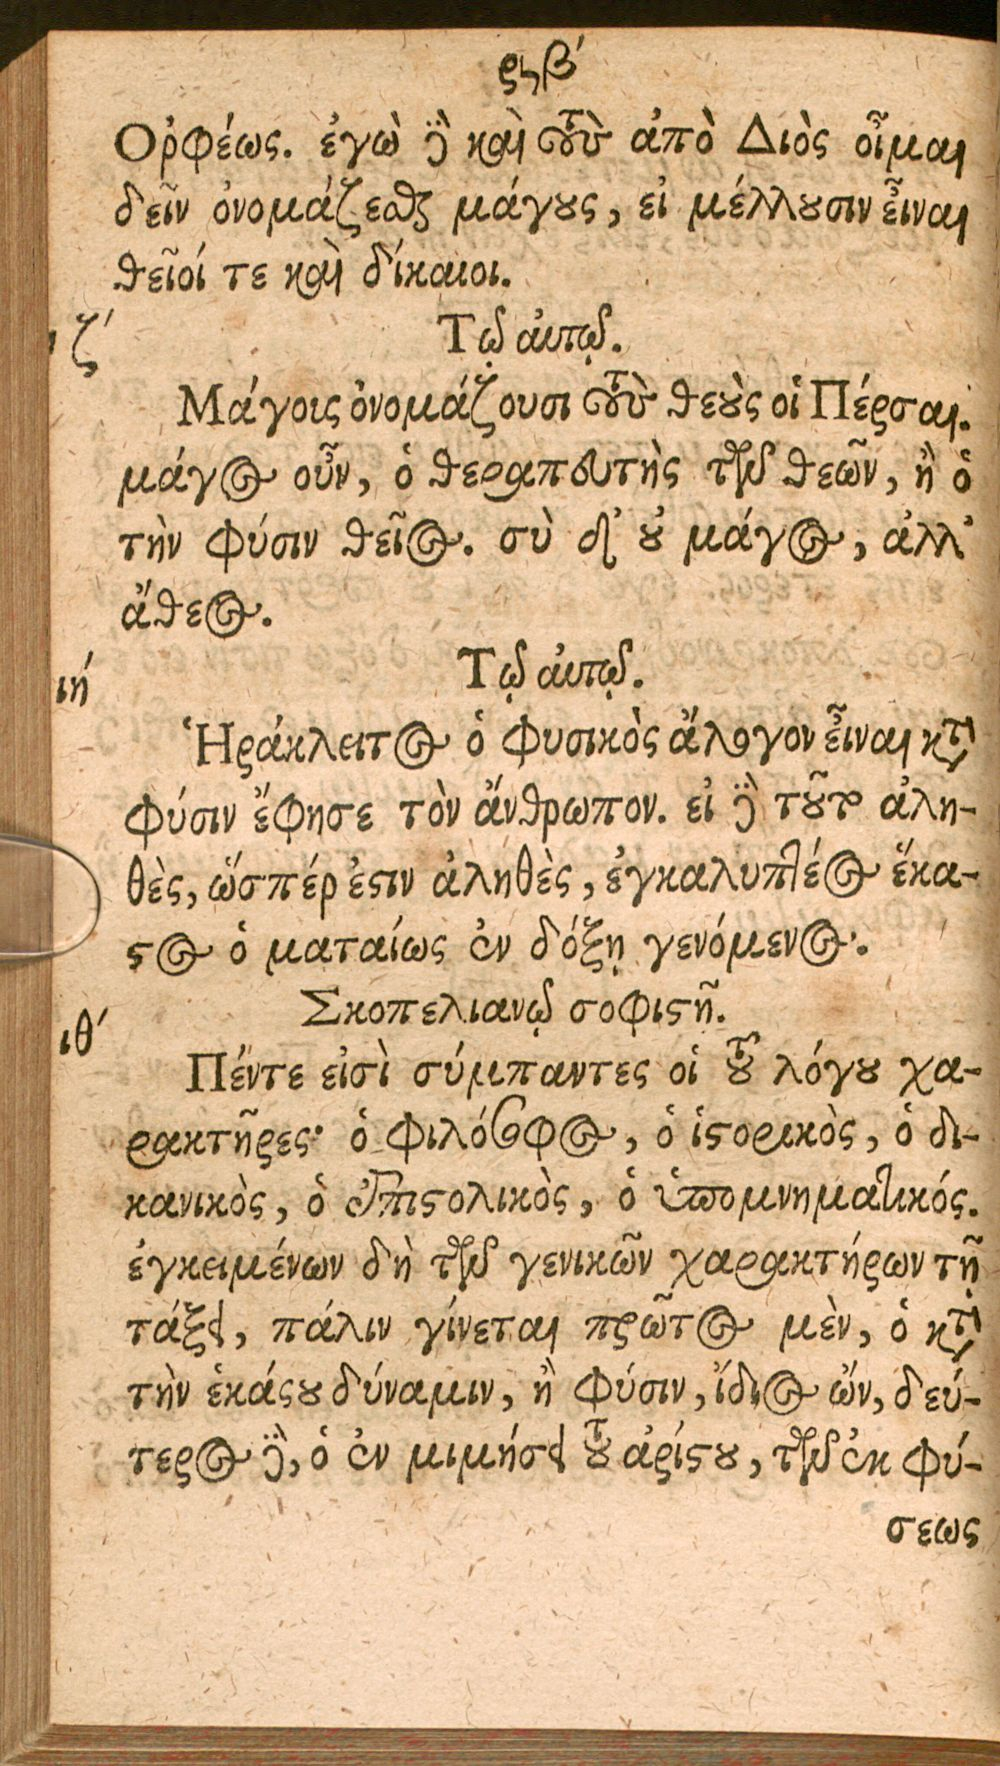 ρϟβʹ
Ορφέως. ἐγὼ δὲ καὶ τοὺς ἀπὸ Διὸς οἶμαι
δεῖν ὀνομάζεσθαι μάγους, εἰ μέλλουσιν εἶναι
θεῖοί τε καὶ δίκαιοι.
ιζʹ Τῷ αὐτῷ.
Μάγοις ὀνομάζουσι τοὺς θεοὺς οἱ Πέρσαι.
μάγος οὖν, ὁ θεραπευτὴς τῶν θεῶν, ἢ ὁ
τὴν φύσιν θεῖος. σὺ δ' οὐ μάγος, ἀλλ'
ἄθεος.
Τῷ αὐτῷ.
ιηʹ
Ἡράκλειτος ὁ φυσικὸς ἄλογον εἶναι κατὰ
φύσιν ἔφησε τὸν ἄνθρωπον. εἰ δὲ τοῦτο ἀλη-
θὲς, ὥσπέρ ἐστιν ἀληθὲς, ἐγκαλυπτέος ἕκα-
στος ὁ ματαίως ἐν δόξῃ γενόμενος.
Σκοπελιανῷ σοφιστῇ.
ιθʹ
Πέντε εἰσὶ σύμπαντες οἱ τοῦ λόγου χα-
ρακτῆρες· ὁ φιλόσοφος, ὁ ἱστορικὸς, ὁ δι-
κανικὸς, ὁ ἐπιστολικὸς, ὁ ὑπομνηματικός.
ἐγκειμένων δὴ τῶν γενικῶν χαρακτήρων τῇ
τάξει, πάλιν γίνεται πρῶτος μὲν, ὁ κατὰ
τὴν ἑκάστου δύναμιν, ἢ φύσιν, ἴδιος ὢν, δεύ-
τερος δὲ, ὁ ἐν μιμήσει τοῦ ἀρίστου, τῶν ἐκ φύ-
σεως